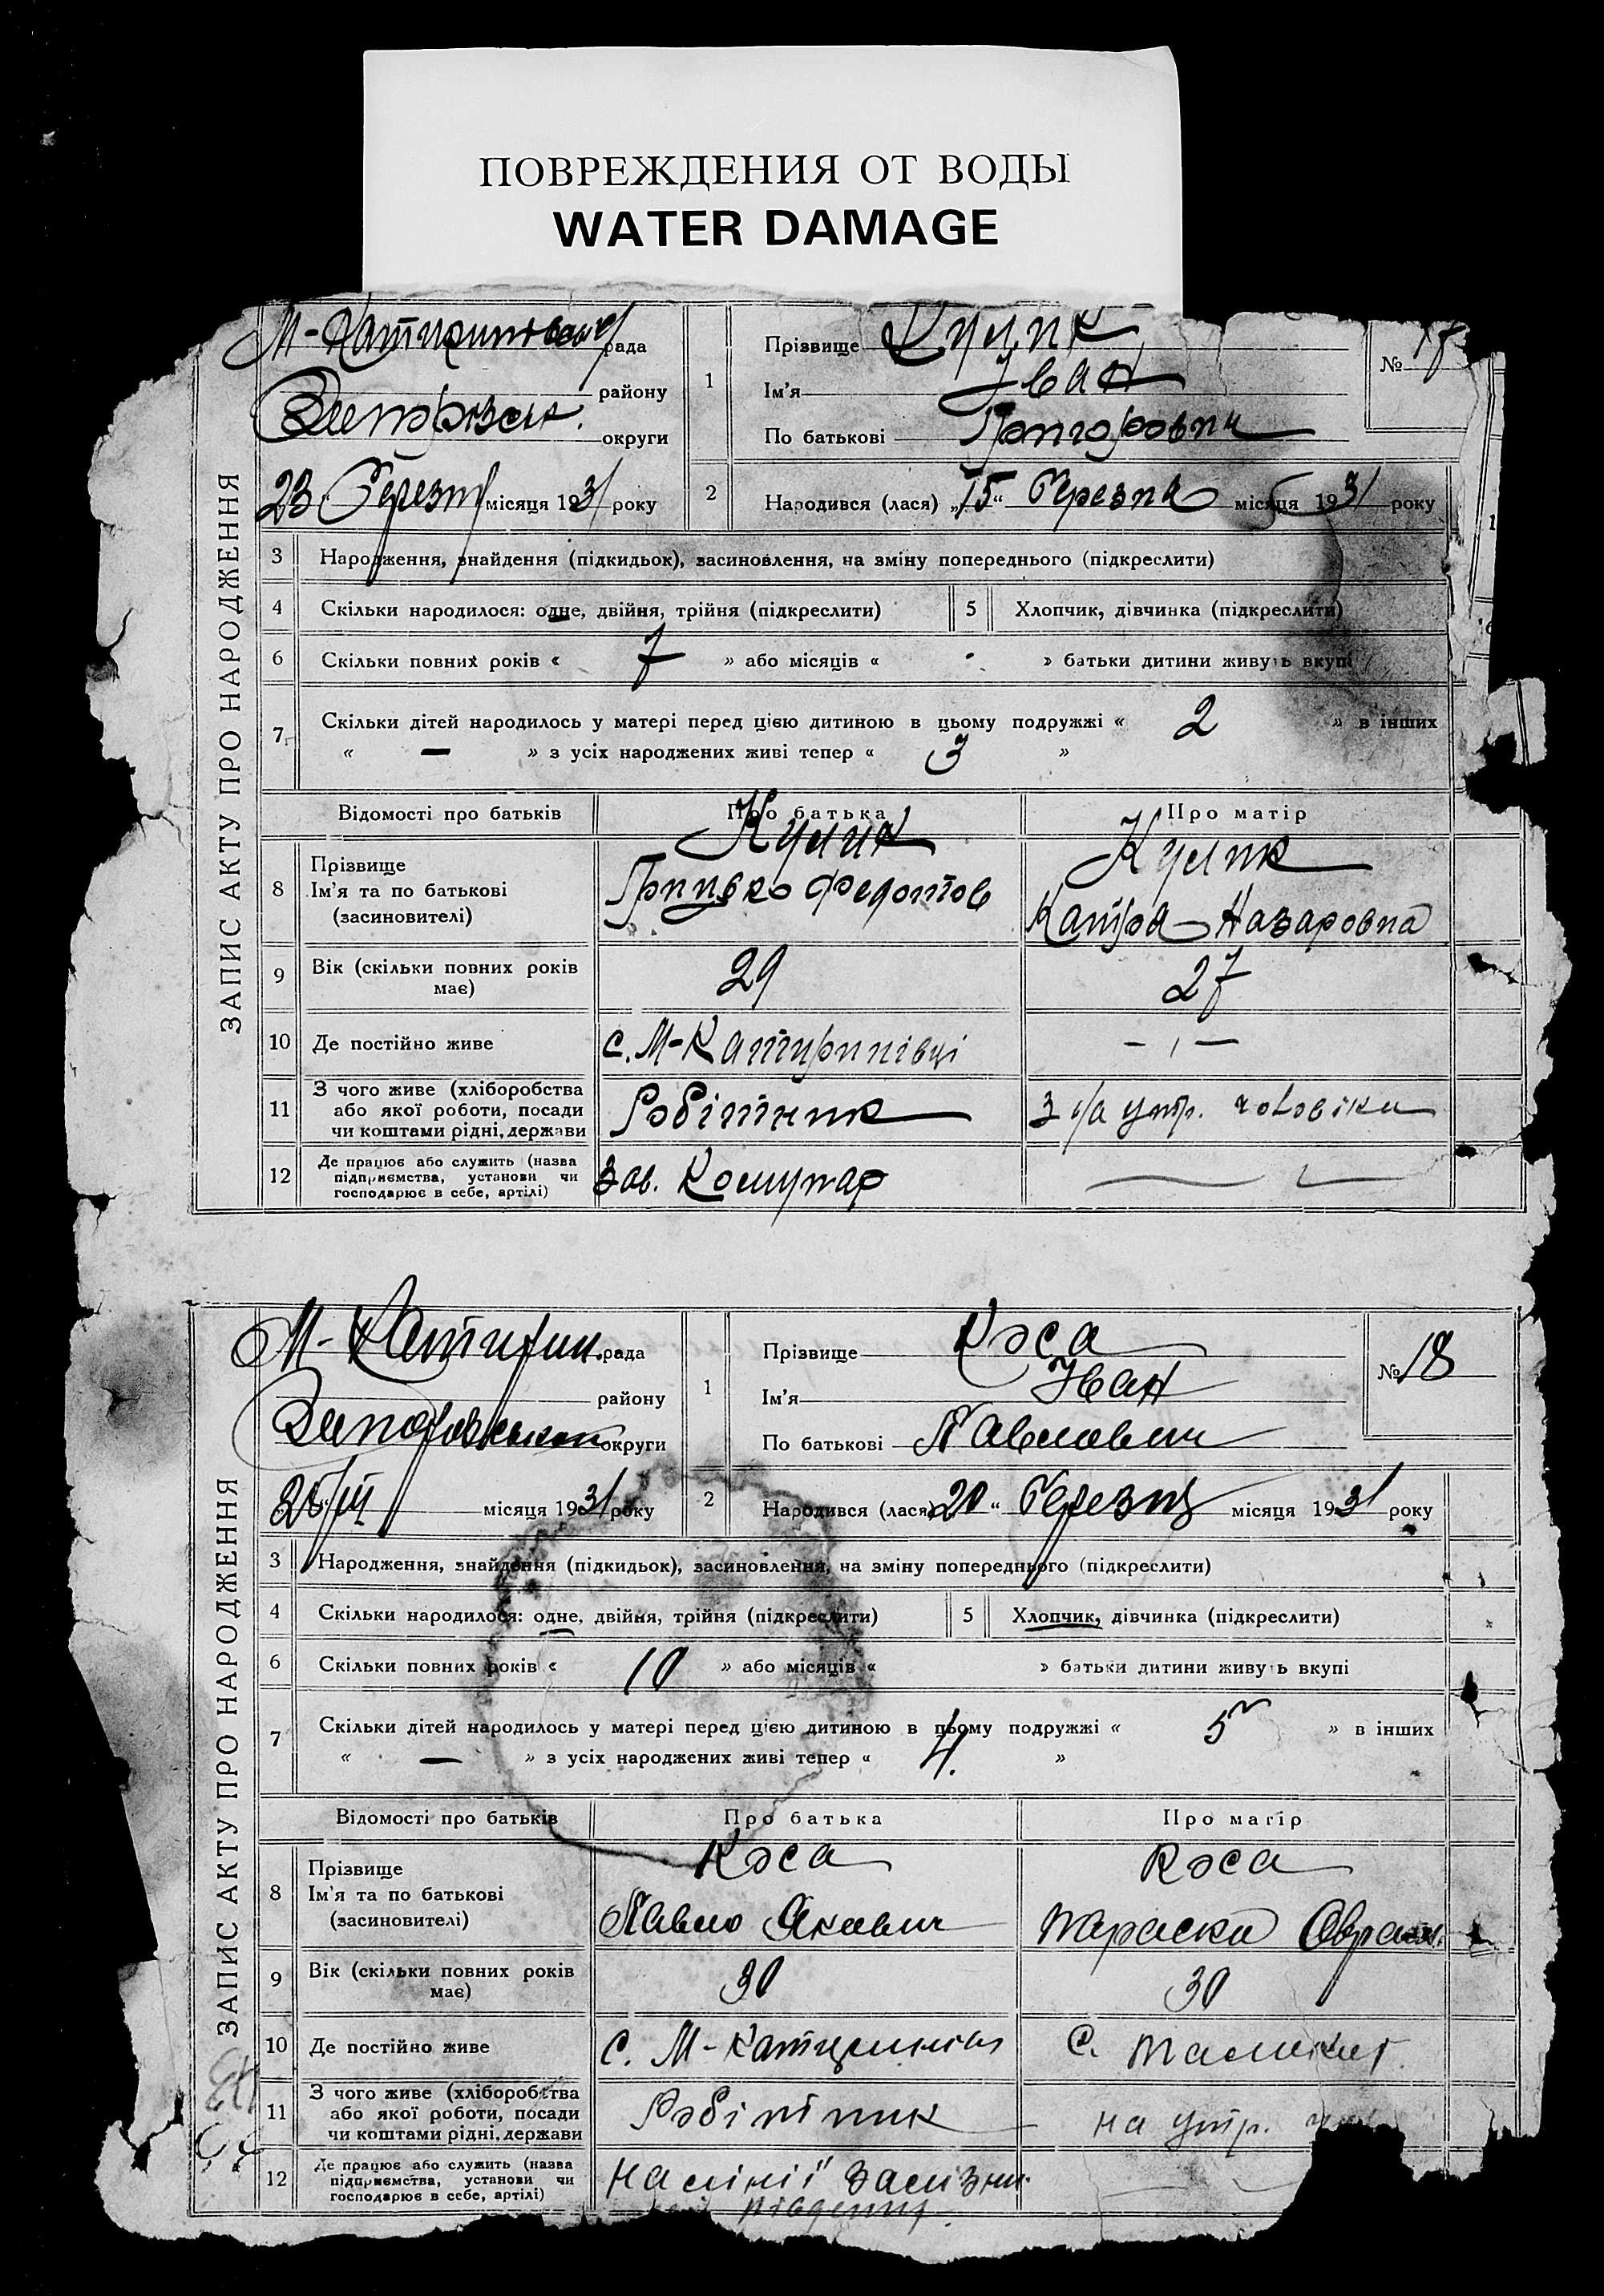 ПОВРЕЖДЕНИЯ ОТ ВОДЫ
WATER DAMAGE
ЗАПИС АКТУ ПРО НАРОДЖЕННЯ
рада
району
округи
23 Березня місяця 1931 року
1
Прізвище Кулик
Ім'я Іван
По батькові Григорович
№
2
Народився (лася) „15“ Березня місяця 1931 року
3 Народження, знайдення (підкидьок), засиновлення, на зміну попереднього (підкреслити)
4 Скільки народилося: одне, двійня, трійня (підкреслити) 5 Хлопчик, дівчинка (підкреслити)
6 Скільки повних років « 7 » або місяців « » батьки дитини живуть вкупі
7 Скільки дітей народилось у матері перед цією дитиною в цьому подружжі « 2 » в інших
« — » з усіх народжених живі тепер « 3 »
Відомості про батьків Про батька Про матір
8 Прізвище
Ім'я та по батькові
(засиновителі)
Кулик
Грицько Федотов
Кулик
Катря Назаровна
9 Вік (скільки повних років має) 29 27
10 Де постійно живе с. М-Катиринівці — „ —
11 З чого живе (хліборобства
або якої роботи, посади
чи коштами рідні, держави
Робітник
чоловіка
12 Де працює або служить (назва
підприємства, установи чи
господарює в себе, артілі)
Зав. Комунар
ЗАПИС АКТУ ПРО НАРОДЖЕННЯ
М-Катирин. рада
району
округи
місяця 1931 року
1
Прізвище Коса
Ім'я Іван
По батькові Павлович
№ 18
2
Народився (лася) 20“ Березня місяця 1931 року
3 Народження, знайдення (підкидьок), засиновлення, на зміну попереднього (підкреслити)
4 Скільки народилося: одне, двійня, трійня (підкреслити) 5 Хлопчик, дівчинка (підкреслити)
6 Скільки повних років « 10 » або місяців « » батьки дитини живуть вкупі
7 Скільки дітей народилось у матері перед цією дитиною в цьому подружжі « 5 » в інших
« — » з усіх народжених живі тепер « 4. »
Відомості про батьків Про батька Про матір
8 Прізвище
Ім'я та по батькові
(засиновителі)
Коса
Павло Якович
Коса
Параска Аврам.
9 Вік (скільки повних років має) 30 30
10 Де постійно живе с. М-Катиринівка с.
11 З чого живе (хліборобства
або якої роботи, посади
чи коштами рідні, держави
Робітник
на утр.
12 Де працює або служить (назва
підприємства, установи чи
господарює в себе, артілі)
на лінії залізниц.
південня